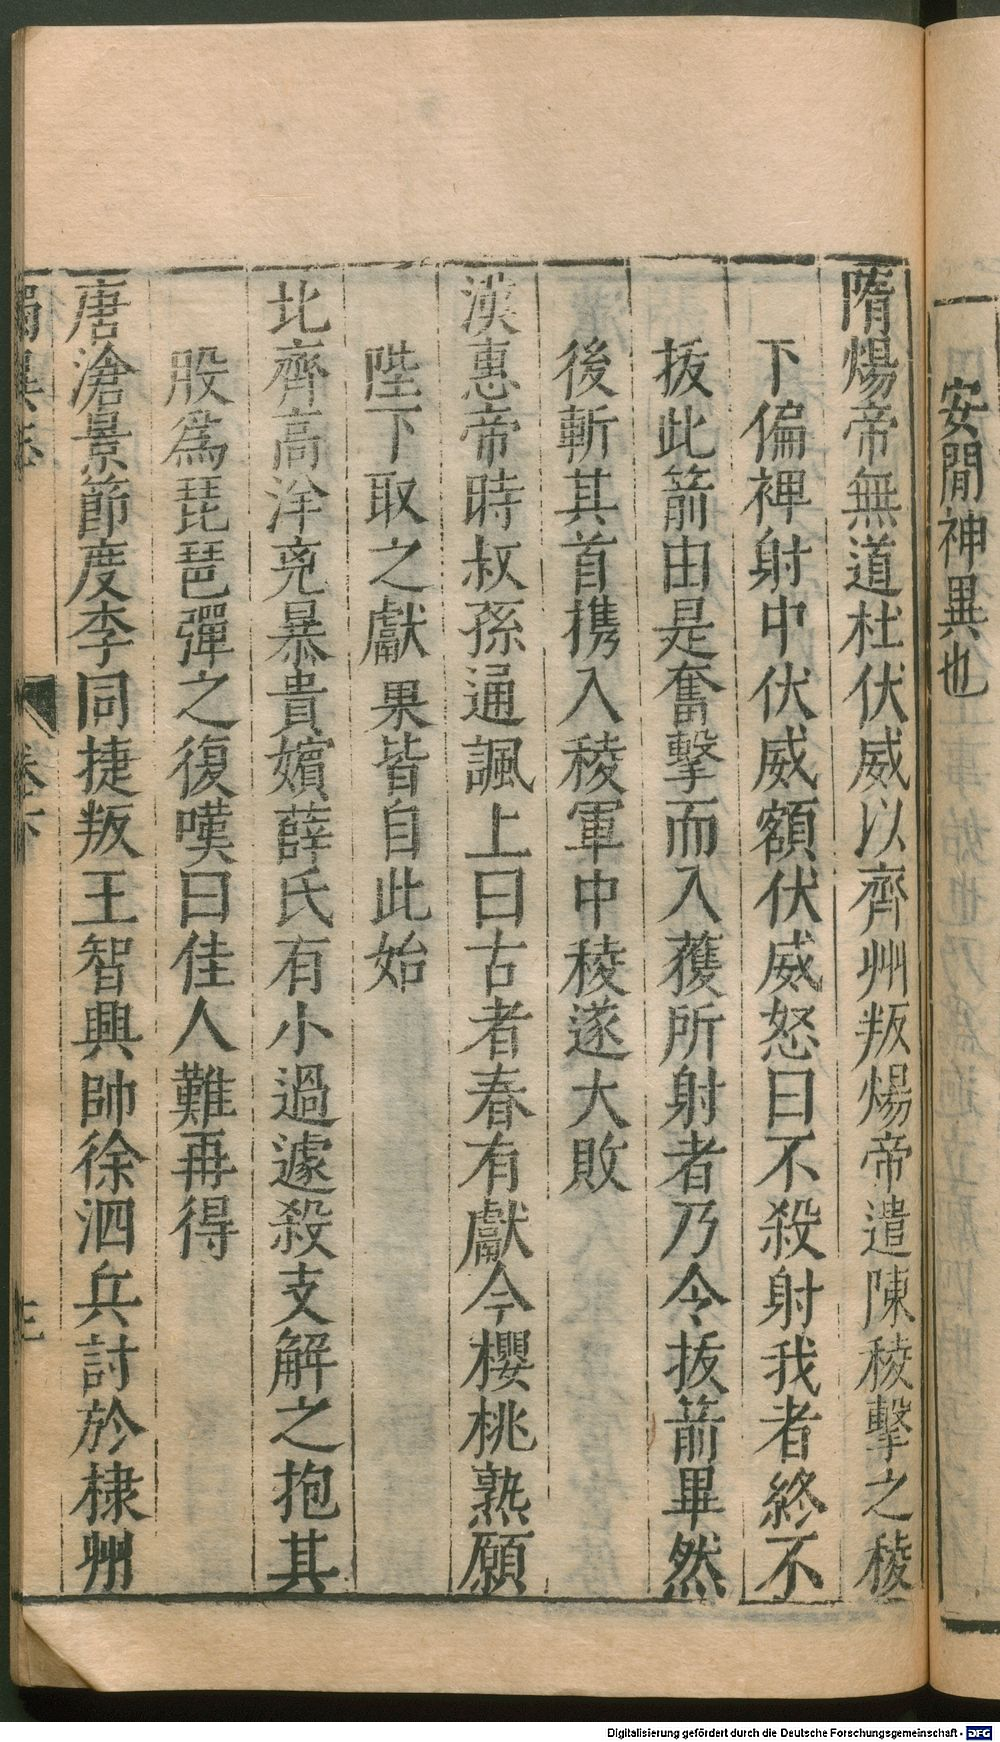 安閒神異也
隋煬帝無道杜伏威以齊州叛煬帝遣陳稜擊之稜
下偏裨射中伏威額伏威怒曰不殺射我者終不
拔此箭由是奮擊而入獲所射者乃令拔箭畢然
後斬其首携入稜軍中稜遂大敗
漢惠帝時叔孫通諷上曰古者春有獻今櫻桃熟願
陛下取之獻果皆自此始
北齊高洋兇暴貴嬪薛氏有小過遽殺支解之抱其
股爲琵琶彈之復嘆曰佳人難再得
唐滄景節度李同捷叛王智興帥徐泗兵討於棣州
卷下
Digitalisierung gefördert durch die Deutsche Forschungsgemeinschaft - DFG